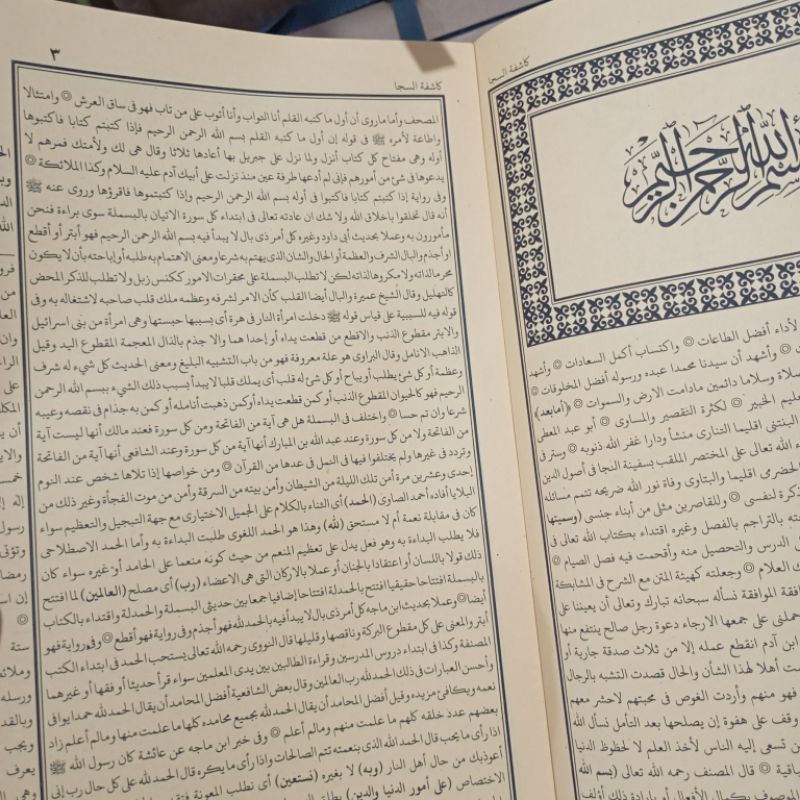 كاشفة السجا
بسم الله الرحمن الرحيم
لأداء أفضل الطاعات ۞ واكتساب أكمل السعادات ۞ وأشهد
۞ وأشهد أن سيدنا محمدا عبده ورسوله أفضل المخلوقات ۞
صلاة وسلاما دائمين مادامت الارض والسموات ۞ (أمابعد)
عليم الخبير ۞ لكثرة التقصير والمساوى ۞ أبو عبد المعطى
البنتنى اقليما التنارى منشأ ودارا غفر الله ذنوبه ۞ وستر فى
ء الله تعالى على المختصر الملقب بسفينة النجا فى أصول الدين
الحضرمى اقليما والبتاوى وفاة نور الله ضريحه تتم مسائله
ذكرة لنفسى ۞ وللقاصرين مثلى من أبناء جنسى (وسميتها
ته بالتراجم بالفصل وغيره اقتداء بكتاب الله تعالى فى
فى الدرس والتحصيل منه وأقحمت فيه فصل الصيام ۞
ك العلام ۞ وجعلته كهيئة المتن مع الشرح فى المشابكة
افقة الموافقة نسأله سبحانه تبارك وتعالى أن يعيننا على
حملنى على جمعها الارجاء دعوة رجل صالح ينتفع منها
ابن آدم انقطع عمله إلا من ثلاث صدقة جارية أو
ست أهلا لهذا الشأن والحال قصدت التشبه بالرجال
فهو منهم وأردت الغوص فى محبتهم لاحشر معهم
وقف على هفوة إن يصلحها بعد التأمل نسأل الله
ن تسعى إليه الناس لأخذ العلم لا لحظوظ الدنيا
باقية ۞ قال المصنف رحمه الله تعالى (بسم الله
الموصوف بكمال الأفعال أو بإرادة ذلك أؤلف
كاشفة السجا
٣
المصحف وأما ماروى أن أول ما كتبه القلم أنا التواب وأنا أتوب على من تاب فهو فى ساق العرش ۞ وامتثالا
واطاعة لأمره ﷺ فى قوله إن أول ما كتبه القلم بسم الله الرحمن الرحيم فإذا كتبتم كتابا فاكتبوها
أوله وهى مفتاح كل كتاب أنزل ولما نزل على جبريل بها أعادها ثلاثا وقال هى لك ولأمتك فمرهم لا
يدعوها فى شئ من أمورهم فإنى لم أدعها طرفة عين منذ نزلت على أبيك آدم عليه السلام وكذا الملائكة ۞
وفى رواية إذا كتبتم كتابا فاكتبوا فى أوله بسم الله الرحمن الرحيم وإذا كتبتموها فاقرؤها وروى عنه ﷺ
أنه قال تخلقوا باخلاق الله ولا شك ان عادته تعالى فى ابتداء كل سورة الاتيان بالبسملة سوى براءة فنحن
مأمورون به وعملا بحديث أبى داود وغيره كل أمر ذى بال لا يبدأ فيه بسم الله الرحمن الرحيم فهو أبتر أو أقطع
او أجذم والبال الشرف والعظمة أو الحال والشان الذى يهتم به شرعا ومعنى الاهتمام به طلبه أو إباحته بأن لا يكون
محرما لذاته ولا مكروها لذاته لكن لا تطلب البسملة على محقرات الامور ككنس زبل ولا تطلب للذكر المحض
كالتهليل وقال الشيخ عميرة والبال أيضا القلب كأن الامر لشرفه وعظمه ملك قلب صاحبه لاشتغاله به وفى
قوله فيه للسببية على قياس قوله ﷺ دخلت امرأة النار فى هرة أى بسببها حبستها وهى امرأة من بنى اسرائيل
والابتر مقطوع الذنب والاقطع من قطعت يداه أو إحدا هما والا جذم بالذال المعجمة المقطوع اليد وقيل
الذاهب الانامل وقال البراوى هو علة معروفة فهو من باب التشبيه البليغ ومعنى الحديث كل شيء له شرف
وعظمة أو كل شئ يطلب أو يباح أو كل شئ له قلب أى يملك قلبا لا يبدأ بسبب ذلك الشيء ببسم الله الرحمن
الرحيم فهو كالحيوان المقطوع الذنب أو كمن قطعت يداه أو كمن ذهبت أنامله أو كمن به جذام فى نقصه وعيبه
شرعا وان تم حسا ۞ واختلف فى البسملة هل هى آية من الفاتحة ومن كل سورة فعند مالك أنها ليست آية
من الفاتحة ولا من كل سورة وعند عبد الله بن المبارك أنها آية من كل سورة وعند الشافعى أنها آية من الفاتحة
وتردد فى غيرها ولم يختلفوا فيها فى النمل فى عدها من القرآن ۞ ومن خواصها إذا تلاها شخص عند النوم
إحدى وعشرين مرة أمن تلك الليلة من الشيطان وأمن بيته من السرقة وأمن من موت الفجأة وغير ذلك من
البلايا أفاده أحمد الصاوى (الحمد) أى الثناء بالكلام على الجميل الاختيارى مع جهة التبجيل والتعظيم سواء
كان فى مقابلة نعمة أم لا مستحق (لله) وهذا هو الحمد اللغوى طلبت البداءة به وأما الحمد الاصطلاحى
فلا يطلب البداءة به وهو فعل يدل على تعظيم المنعم من حيث كونه منعما على الحامد أو غيره سواء كان
ذلك قولا باللسان أو اعتقادا بالجنان أو عملا بالاركان التى هى الاعضاء (رب) أى مصلح (العالمين) لما افتتح
بالبسملة افتتاحا حقيقيا افتتح بالحمدلة افتتاحا إضافيا جمعا بين حديثى البسملة والحمدلة واقتداء بالكتاب
أيضا ۞ وعملا بحديث ابن ماجه كل أمر ذى بال لا يبدأ فيه بالحمد لله فهو أجذم وفى رواية فهو أقطع ۞ وفى رواية فهو
أبتر والمعنى على كل مقطوع البركة وناقصها وقليلها قال النووى رحمه الله تعالى يستحب الحمد فى ابتداء الكتب
المصنفة وكذا فى ابتداء دروس المدرسين وقراءة الطالبين بين يدى المعلمين سواء قرأ حديثا أو فقها أو غيرهما
وأحسن العبارات فى ذلك الحمد لله رب العالمين وقال بعض الشافعية أفضل المحامد أن يقال الحمد لله حمدا يوافى
نعمه ويكافئ مزيده وقيل أفضل المحامد أن يقال الحمد لله بجميع محامده كلها ما علمت منها ومالم أعلم زاد
بعضهم عدد خلقه كلهم ما علمت منهم ومالم أعلم ۞ وفى خبر ابن ماجه عن عائشة كان رسول الله ﷺ
اذا رأى ما يحب قال الحمد لله الذى بنعمته تتم الصالحات واذا رأى ما يكره قال الحمد لله على كل حال رب إنى
أعوذ بك من حال أهل النار (وبه) لا بغيره (نستعين) أى نطلب المعونة
الاختصاص (على أمور الدنيا والدين)